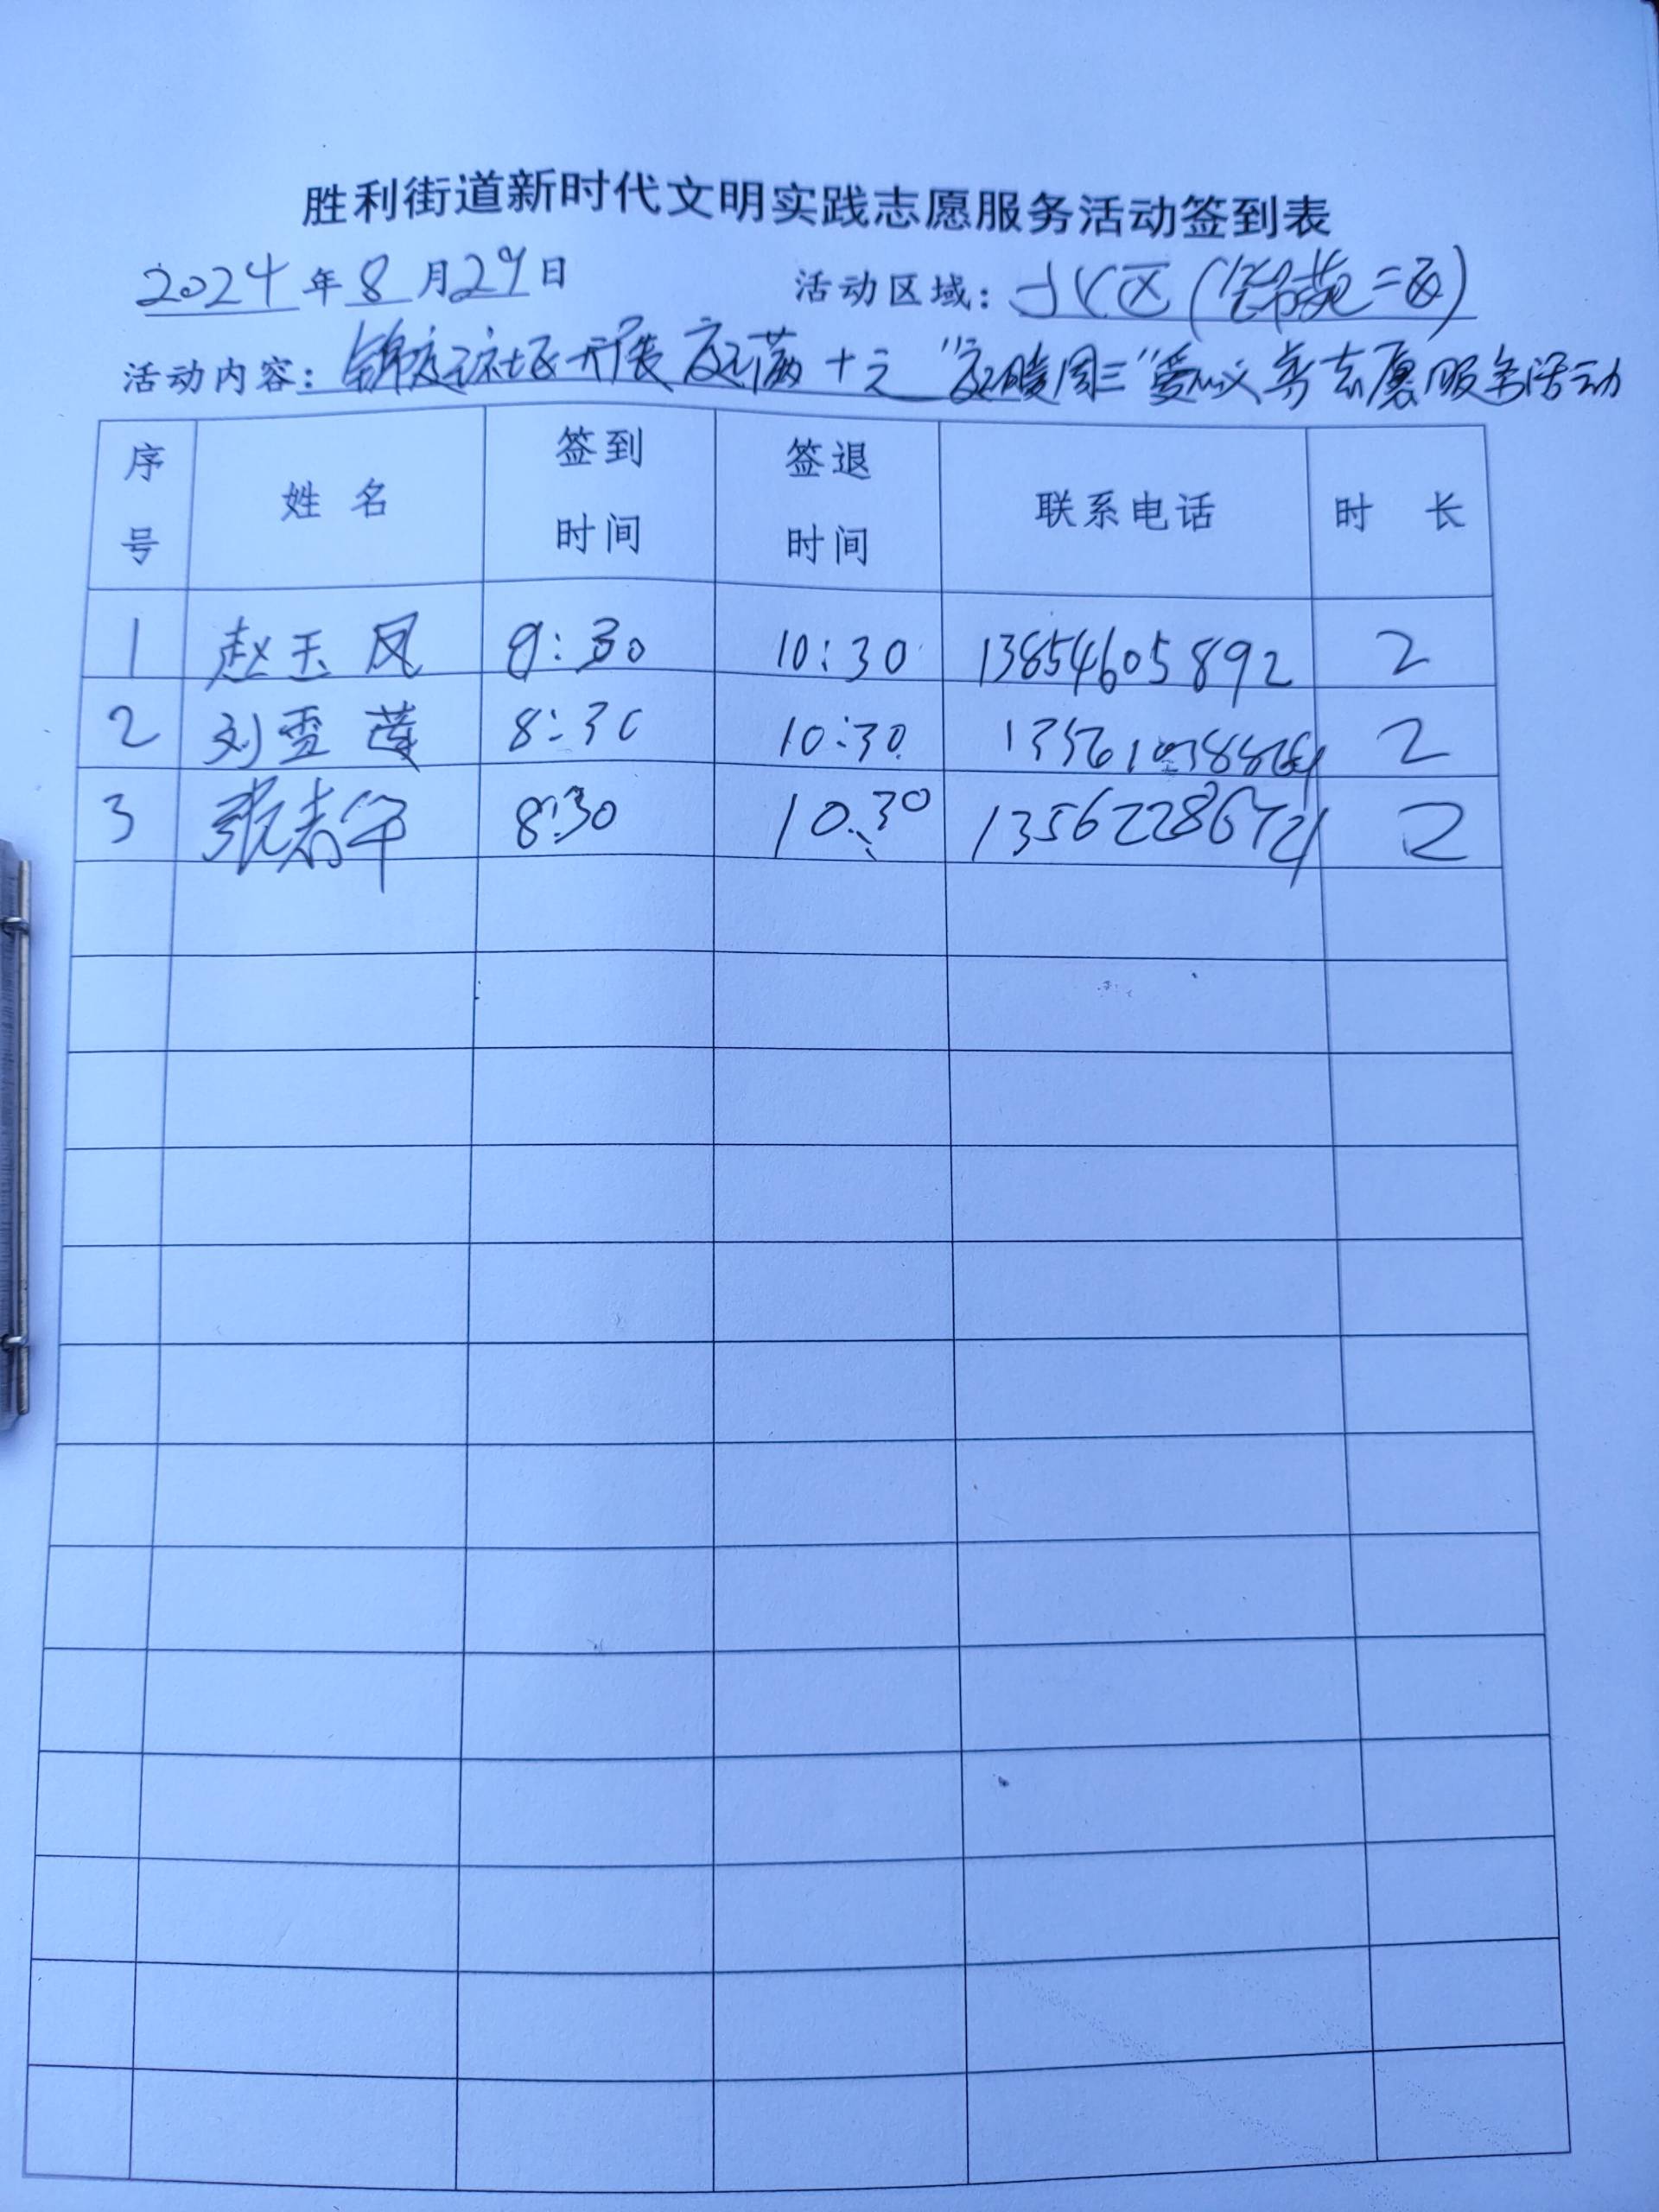 胜利街道新时代文明实践志愿服务活动签到表
2024年8月29日 活动区域：小区（锦苑二区）
活动内容：锦庭社区开展庭满十元“庭暖周三”爱心义剪志愿服务活动
序号 姓名 签到时间 签退时间 联系电话 时长
1 赵玉凤 9:30 10:30 13854605892 2
2 刘雪莲 8:30 10:30 2
3 8:30 10:30 2